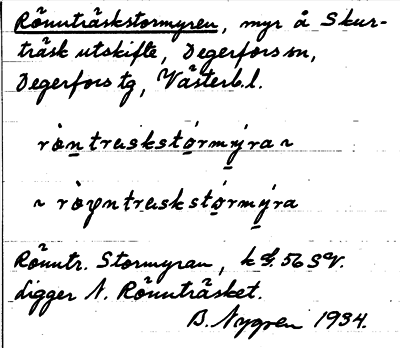 Rönnträskstormyren, myr å Skur-
träsk utskifte, Degerfors sn,
Degerfors tg, Västerb. l.
rö̀ntraskstórmýra ~
~ rö̀yntraskstórmýra
Rönntr. Stormyran, k bl. 56 SV.
Ligger N. Rönnträsket.
B. Nygren 1934.